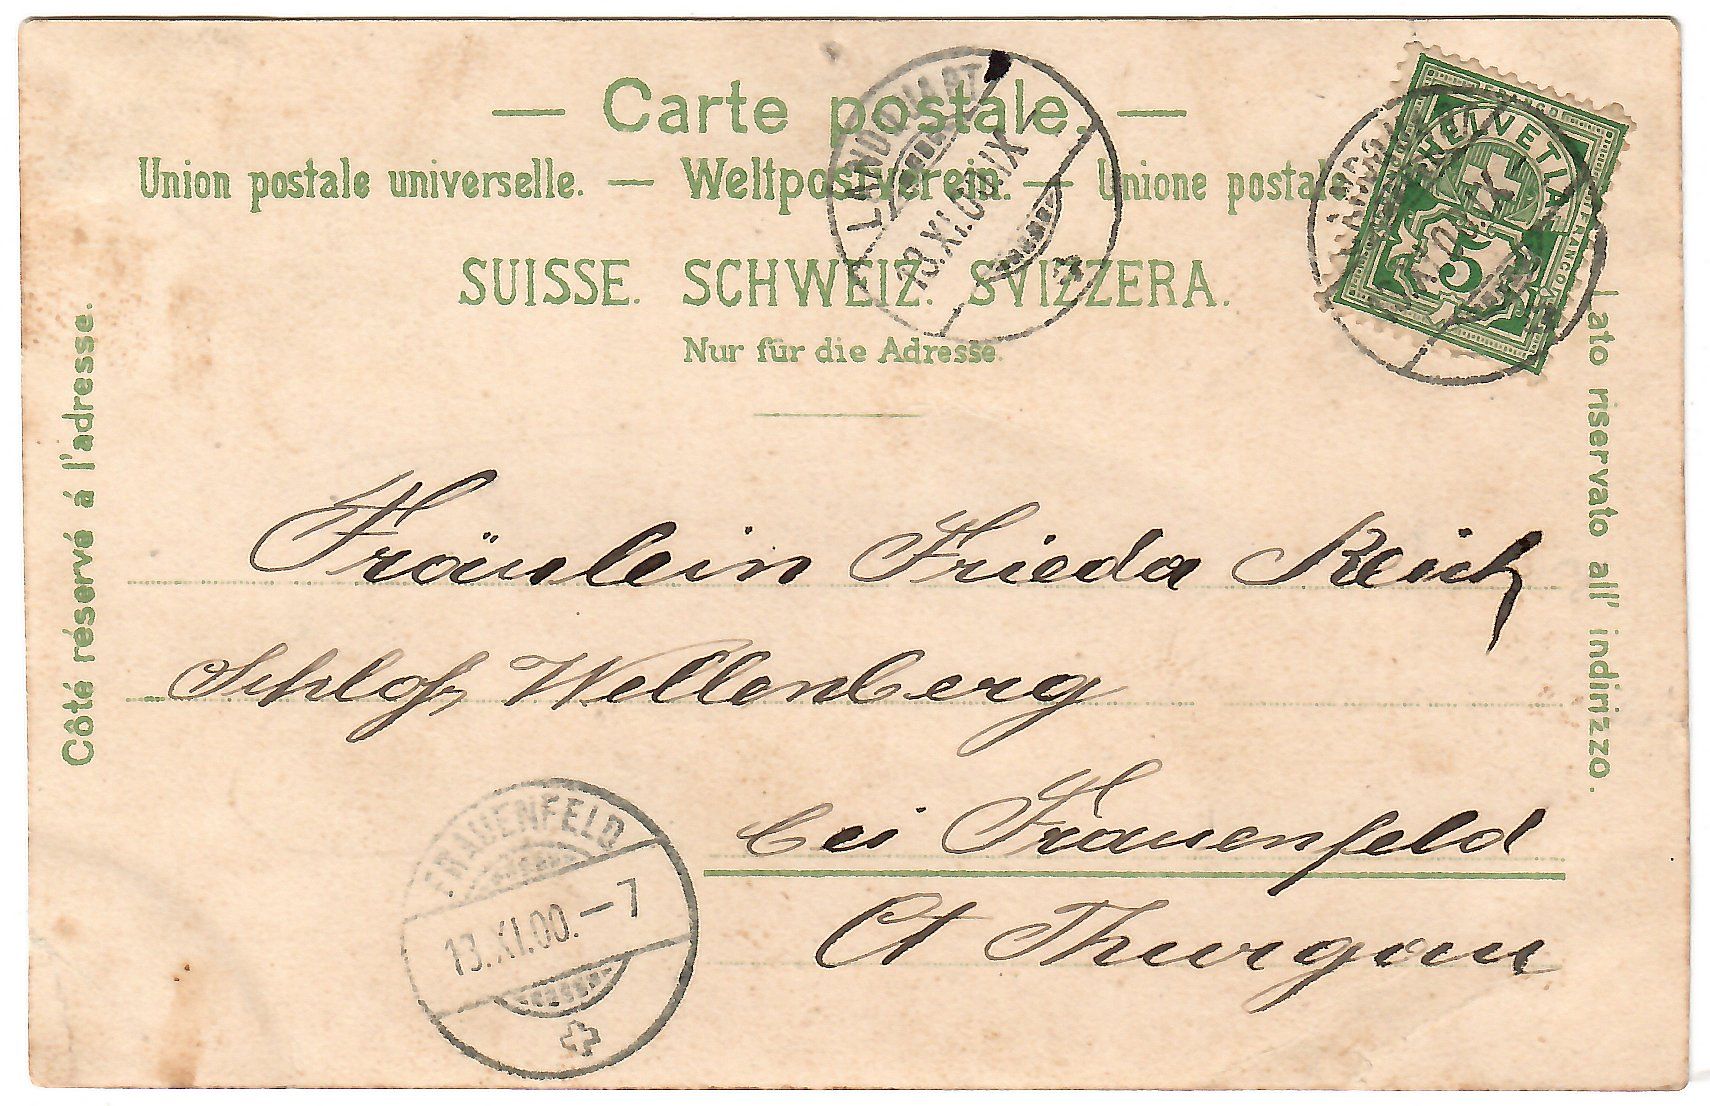 — Carte postale. —
Union postale universelle. — Weltpostverein. — Unione postale
SUISSE. SCHWEIZ. SVIZZERA.
Nur für die Adresse.
Côté réservé á l'adresse.
Lato riservato all' indirizzo.
LANDQUART
13.XI.00. IX
HELVETIA
FRANCO
5
Fräulein Frieda Reich
Schloß Wellenberg
bei Frauenfeld
Ct Thurgau
FRAUENFELD
13.XI.00.–7